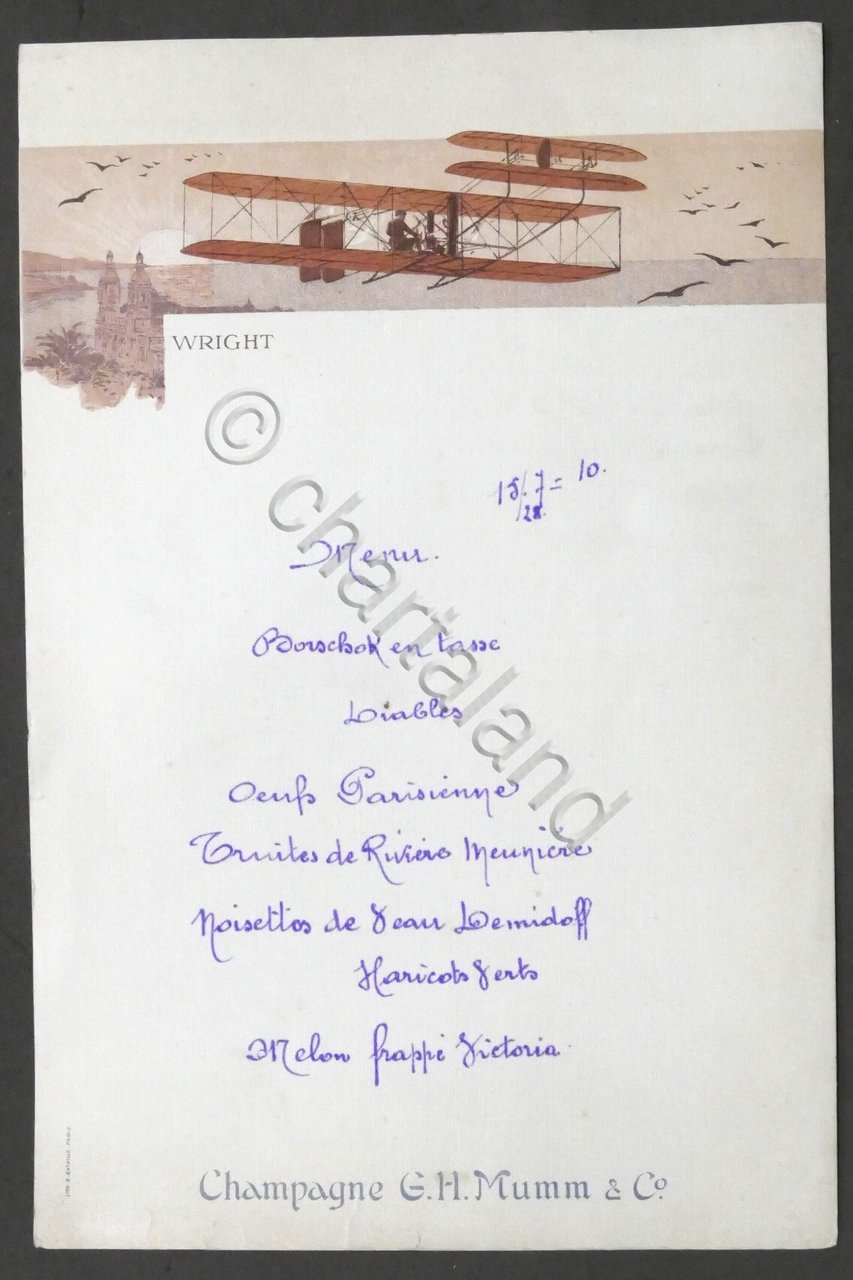 WRIGHT
15/28. 7 = 10.
Menu.
Borschok en tasse
Diables
Oeufs Parisienne
Truites de Rivière Meunière
Noisettes de Veau Demidoff
Haricots Verts
Melon frappé Victoria
Champagne G.H. Mumm & Co
© chartaland